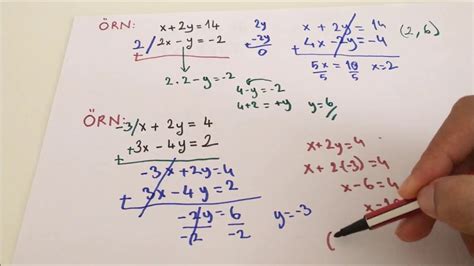 ÖRN: x+2y=14
2/2x-y=-2
+
2.2-y=-2
2y
-2y
0
4-y=-2
4+2=+y
y=6
x+2y=14
4x-2y=-4
+
5x/5=10/5 x=2
(2,6)
ÖRN:
-3/x+2y=4
+3x-4y=2
+
-3x+2y=4
3x-4y=2
+
-2y/-2=6/-2 y=-3
x+2y=4
x+2(-3)=4
x-6=4
(